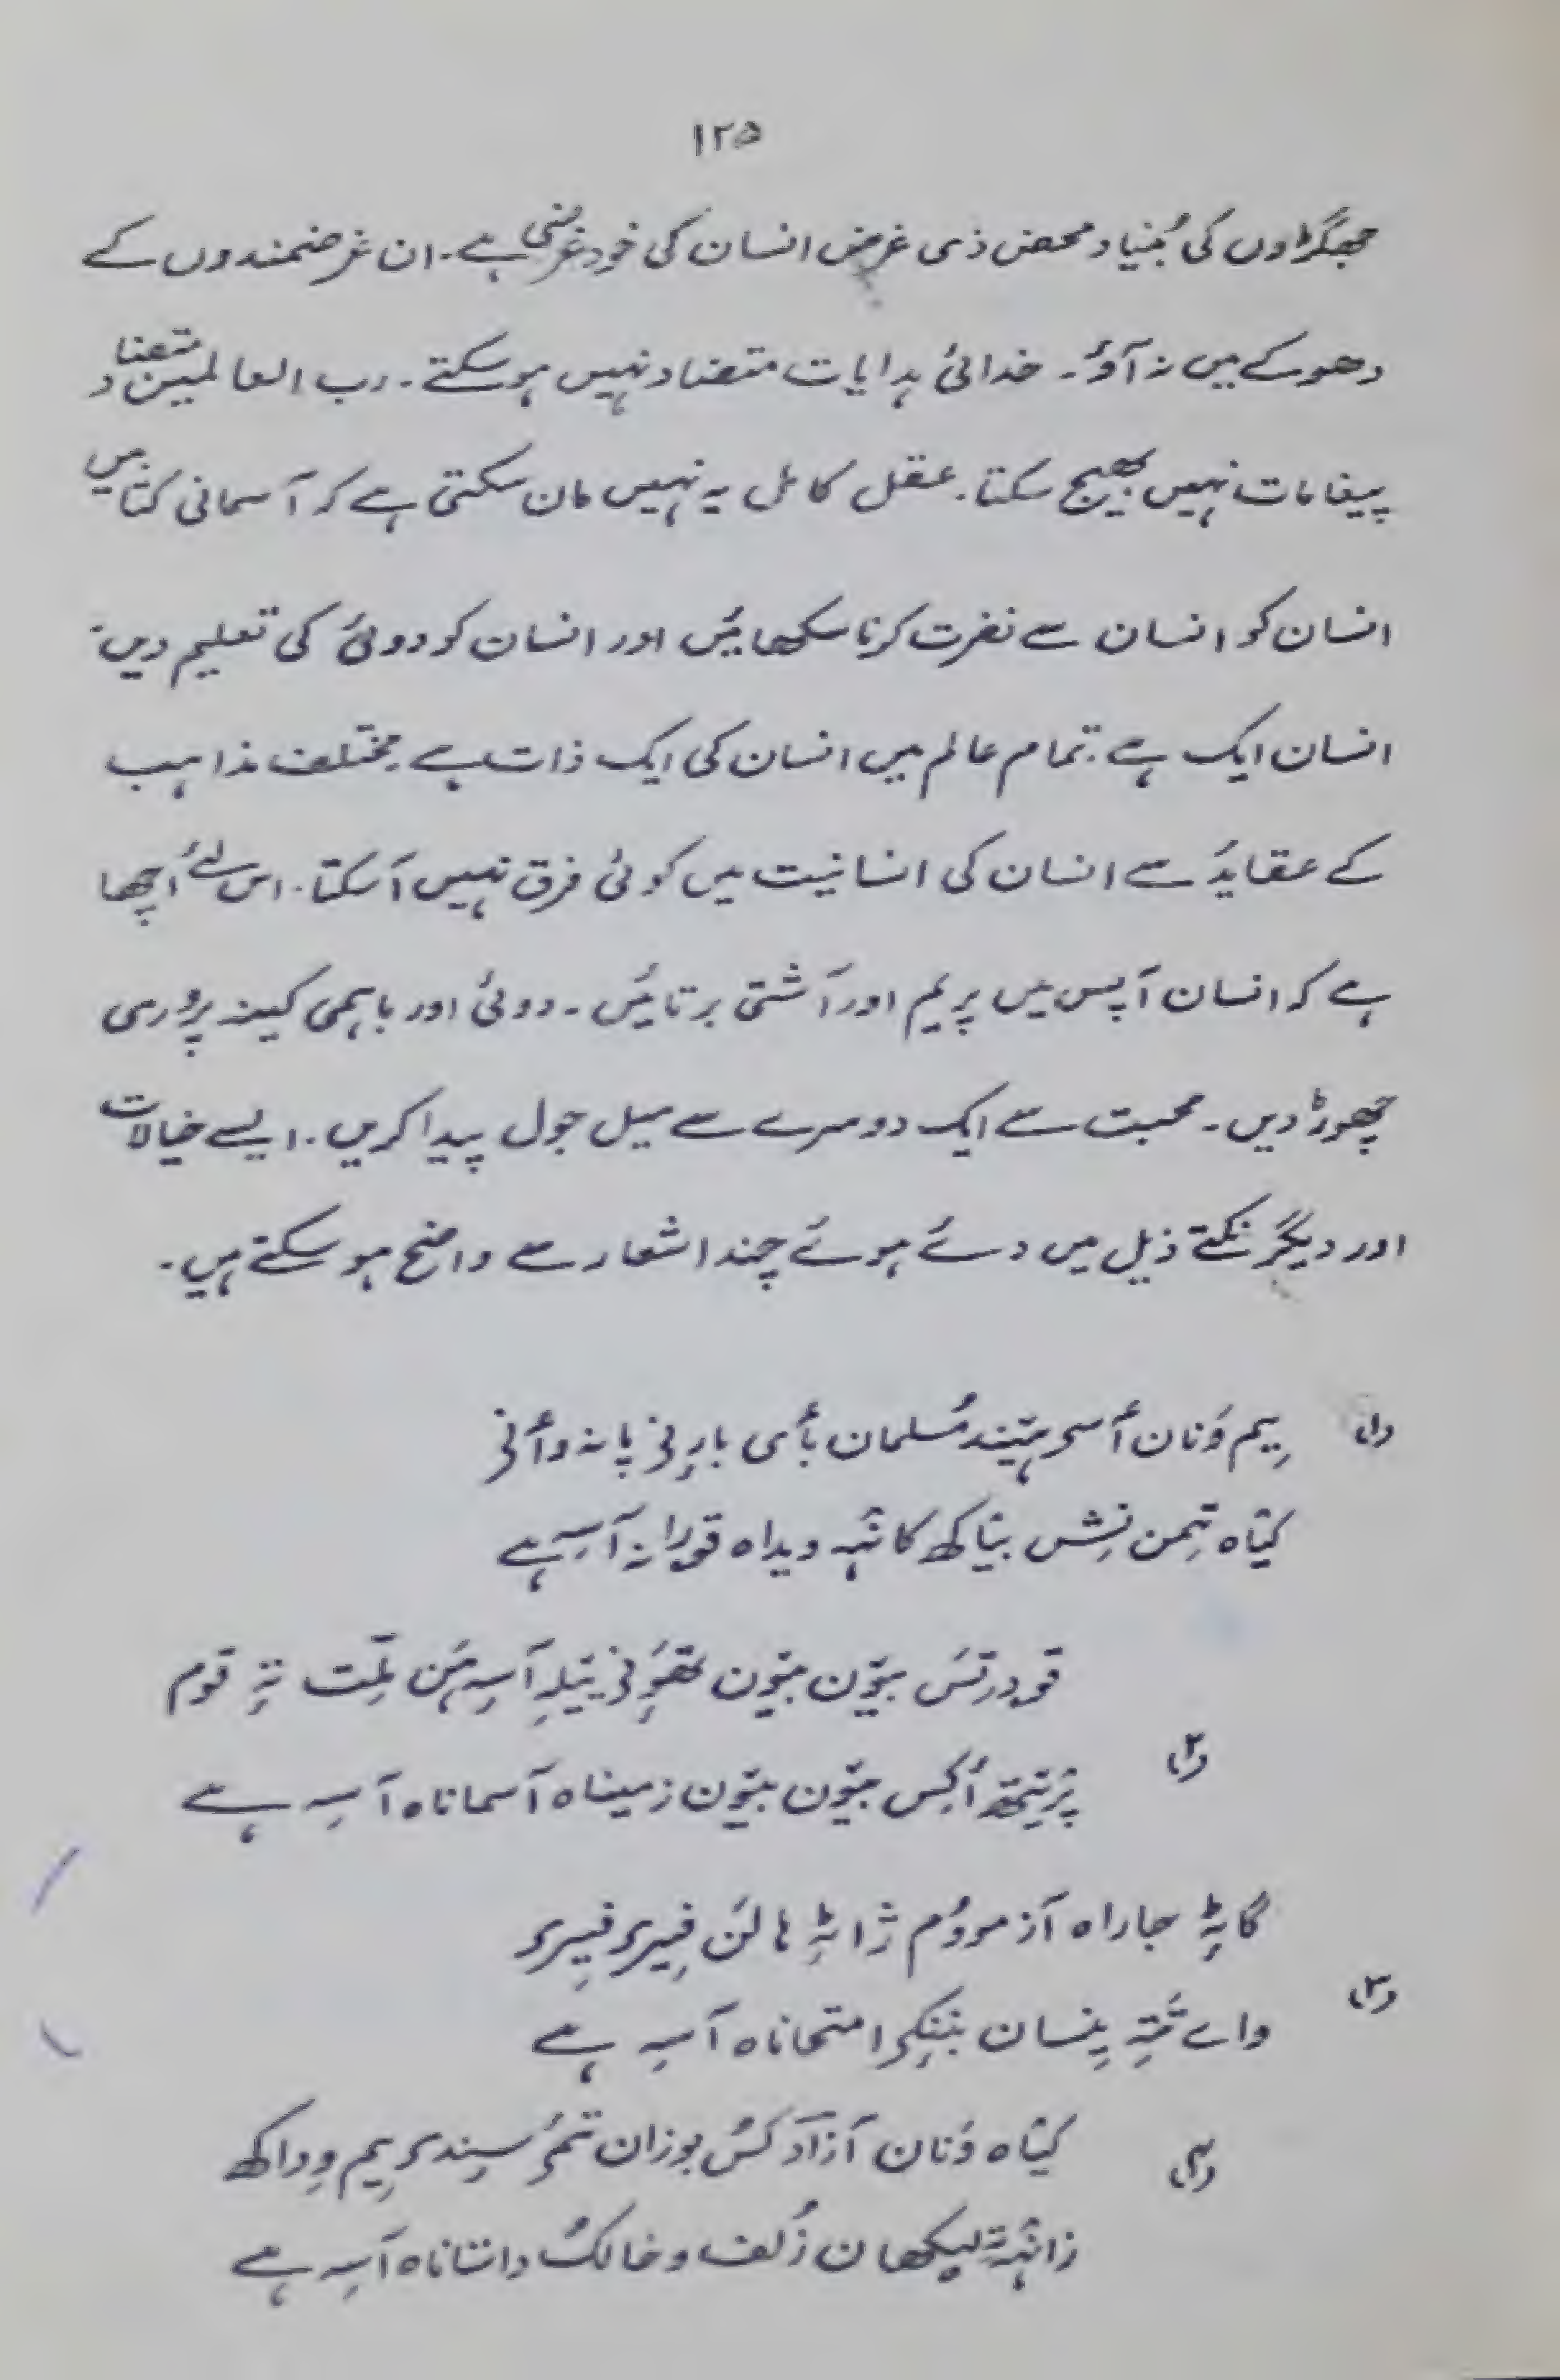 ۱۲۵
جھگڑاوں کی بُنیاد محض ذی غرض انسان کی خود غرضی ہے۔ ان غرضمندوں کے
دھوکے میں نہ آؤ۔ خدائی ہدایات متضاد نہیں ہوسکتے۔ رب العالمین متضاد
پیغامات نہیں بھیج سکتا۔ عقل کامل یہ نہیں مان سکتی ہے کہ آسمانی کتابیں
انسان کو انسان سے نفرت کرنا سکھائیں اور انسان کو دوئی کی تعلیم دیں۔
انسان ایک ہے۔ تمام عالم میں انسان کی ایک ذات ہے۔ مختلف مذاہب
کے عقاید سے انسان کی انسانیت میں کوئی فرق نہیں آسکتا۔ اس لئے اچھا
ہے کہ انسان آپس میں پریم اور آشتی برتائیں۔ دوئی اور باہمی کینہ پروری
چھوڑ دیں۔ محبت سے ایک دوسرے سے میل جول پیدا کریں۔ ایسے خیالات
اور دیگر نکتے ذیل میں دئے ہوئے چند اشعار سے واضح ہو سکتے ہیں۔
(۱) یِم وَنان أسۍ ہیٚند مُسلمان بٲی بارِنۍ پانہ وٲنۍ
کیٛاہ تِمن نِش بیٛاکھ کانٛہہ ویداہ قورانہ آسہِ ہے
قودرتَس بیٚون بیٚون تھوِنۍ یێلہِ آسہِ ہَن مِلّت تہِ قوم
(۲) پرٛیتھ أکِس بیٚون بیٚون زمیناہ آسماناہ آسہِ ہے
گاہِ جاراہ آزموٚوُم ژاٹہِ ہالَن پھیرۍ پھیرۍ
(۳) وایے تَتہِ اِنسان بننُکۍ امتحاناہ آسہِ ہے
کیٛاہ وَنان آزاد کُس بوزان تَمۍ سٕندۍ یِم وداکھ
(۴) زانٛہہ تہِ لیکھان زُلف و خالُک داستاناہ آسہِ ہے